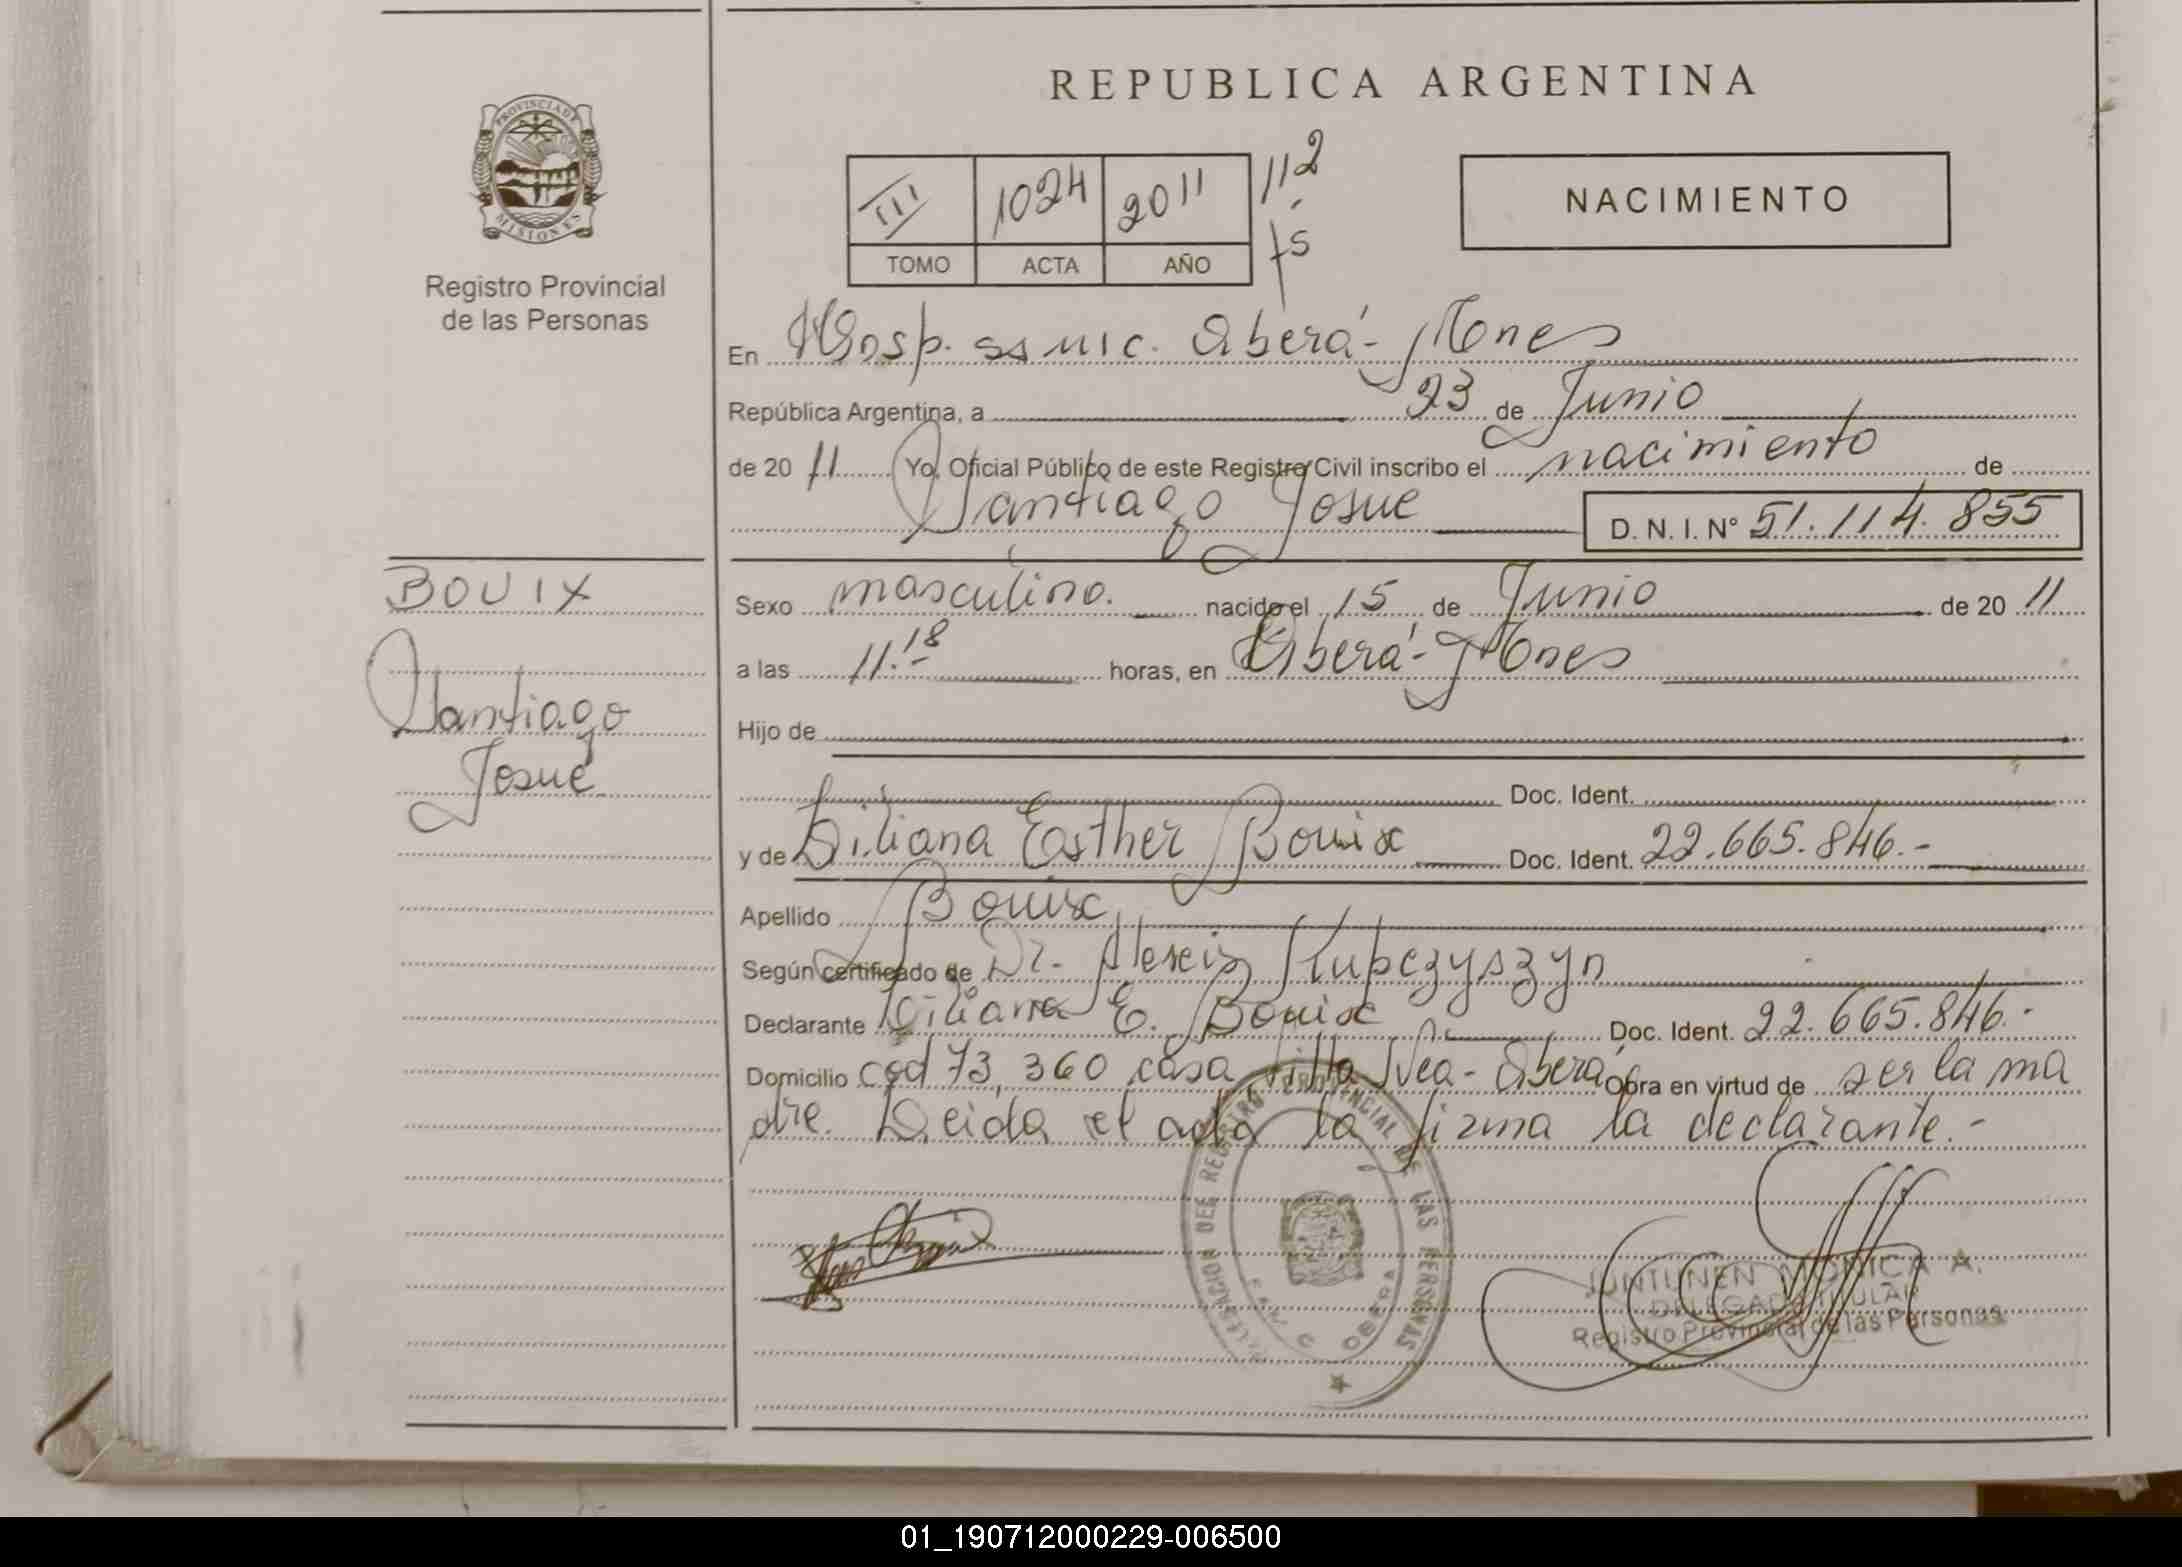 REPUBLICA ARGENTINA
PROVINCIA DE
MISIONES
Registro Provincial
de las Personas
III 1024 2011 112
TOMO ACTA AÑO fs
NACIMIENTO
En Hosp. ss mic. Oberá - Mnes
República Argentina, a 23 de Junio
de 20 11 Yo, Oficial Público de este Registro Civil inscribo el nacimiento de
Santiago Josue D. N. I. Nº 51.114.855
BOUIX
Santiago
Josue
Sexo masculino. nacido el 15 de Junio de 20 11
a las 11.18 horas, en Oberá - Mnes
Hijo de
Doc. Ident.
y de Liliana Esther Bouix Doc. Ident. 22.665.846.-
Apellido Bouix
Según certificado de Dr. Alexis Kupczyszyn
Declarante Liliana E. Bouix Doc. Ident. 22.665.846.-
Domicilio cod 73, 360 casa, Villa Nea - Oberá Obra en virtud de ser la ma
dre. Leida el acta la firma la declarante.-
DELEGACION DEL REGISTRO PROVINCIAL DE LAS PERSONAS
OBERA
JUNTUNEN MONICA A.
DELEGADA TITULAR
Registro Provincial de las Personas
01_190712000229-006500